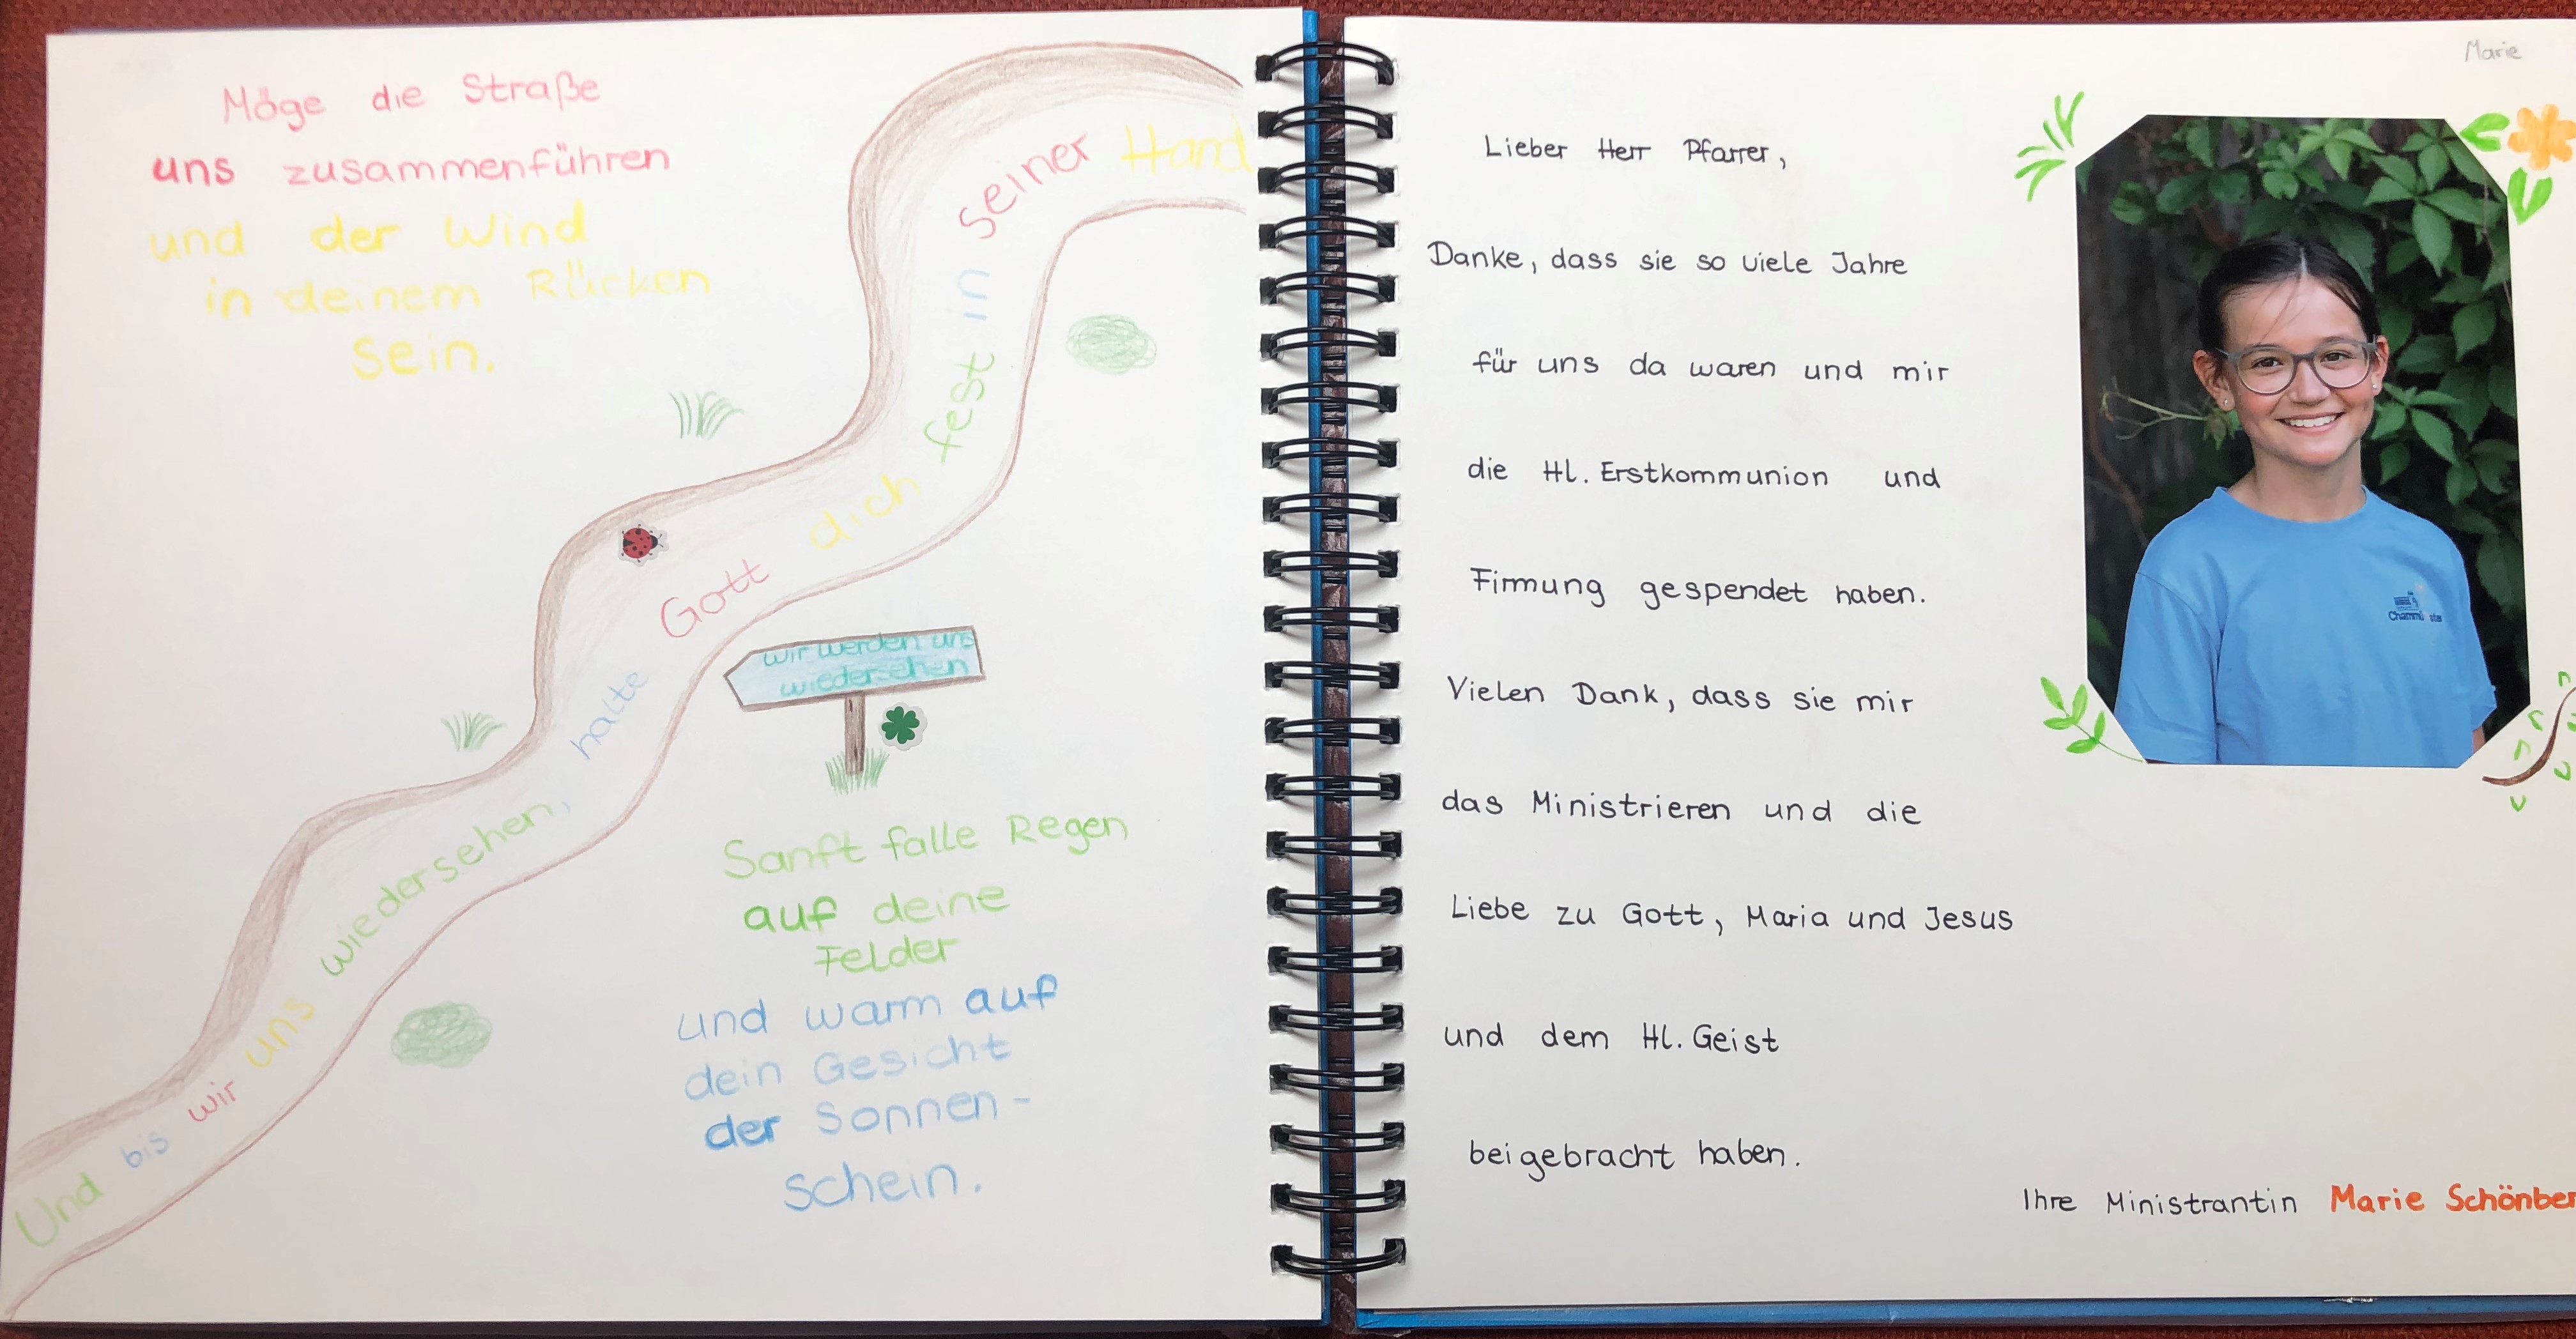 Möge die Straße
uns zusammenführen
und der Wind
in deinem Rücken
sein.
Und bis wir uns wiedersehen, halte Gott dich fest in seiner Hand
wir werden uns
wiedersehen
Sanft falle Regen
auf deine
Felder
und warm auf
dein Gesicht
der Sonnen-
schein.
Marie
Lieber Herr Pfarrer,
Danke, dass sie so viele Jahre
für uns da waren und mir
die Hl. Erstkommunion und
Firmung gespendet haben.
Vielen Dank, dass sie mir
das Ministrieren und die
Liebe zu Gott, Maria und Jesus
und dem Hl. Geist
beigebracht haben.
Ihre Ministrantin Marie Schönber